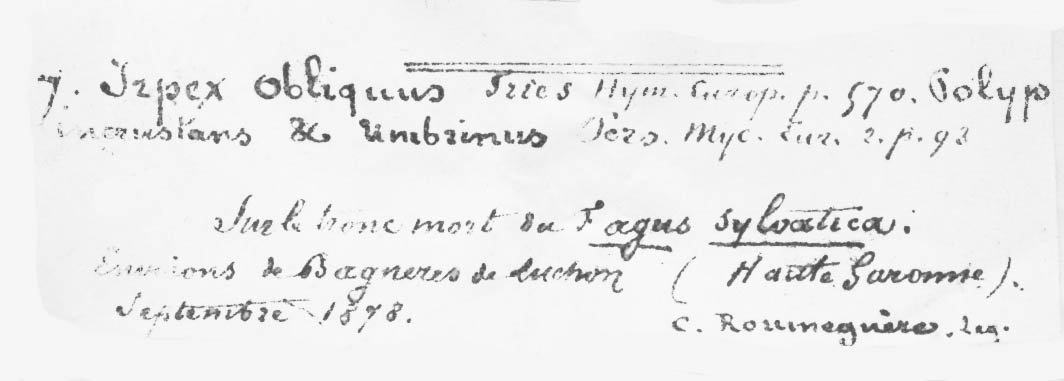 7. Irpex Obliquus Fries Hym. Europ. p. 570. Polyp
incrustans & Umbrinus Pers. Myc. Eur. 2. p. 92
Sur le tronc mort du Fagus Sylvatica.
Environs de Bagneres de Luchon ( Haute Garonne ).
Septembre 1878.
C. Roumeguère. Leg.